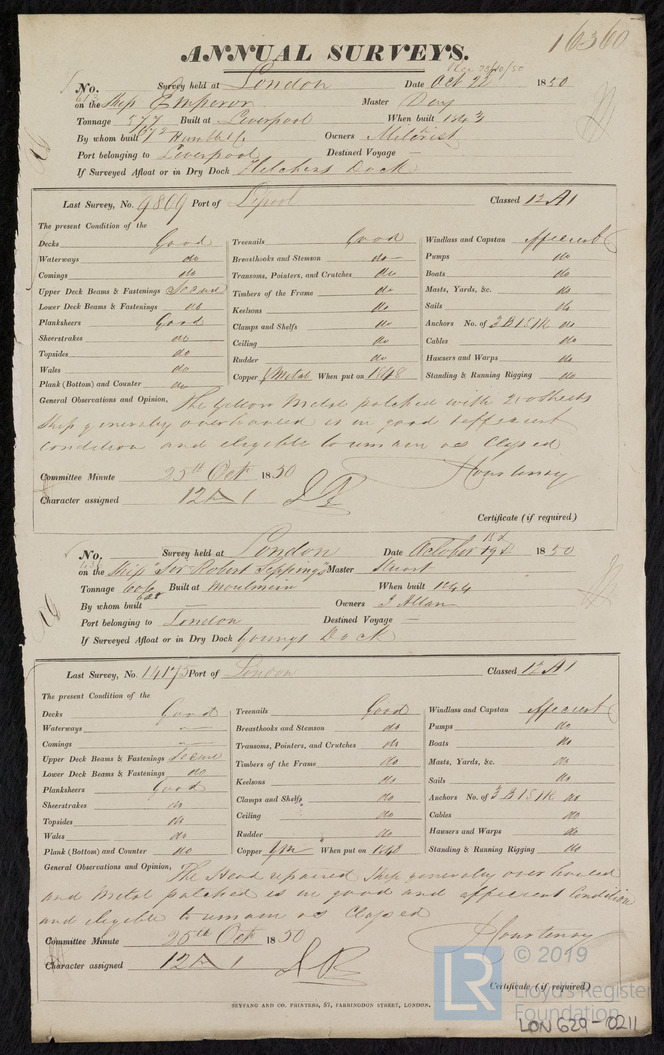 16360
ANNUAL SURVEYS.
No. Survey held at London Date Oct 22 1850
613 on the Ship Emperor Master Day
Tonnage 577 Built at Liverpool When built 1843
672
By whom built Humble Owners
Port belonging to Liverpool Destined Voyage —
If Surveyed Afloat or in Dry Dock Fletchers Dock
Last Survey, No. 9869 Port of Lpool Classed 12 A1
The present Condition of the
Decks Good Treenails Good Windlass and Capstan efficient
Waterways do Breasthooks and Stemson do Pumps do
Comings do Transoms, Pointers, and Crutches do Boats do
Upper Deck Beams & Fastenings Secure Timbers of the Frame do Masts, Yards, &c. do
Lower Deck Beams & Fastenings do Keelsons do Sails do
Planksheers Good Clamps and Shelfs do Anchors No. of 3 B 1 S 1 K do
Sheerstrakes do Ceiling do Cables do
Topsides do Rudder do Hawsers and Warps do
Wales do Copper Y Metal When put on 1848 Standing & Running Rigging do
Plank (Bottom) and Counter do
General Observations and Opinion, The Yellow Metal patched with 20 sheets
Ship generally overhauled is in good & efficient
Condition and eligible to remain as Classed
Committee Minute 25th Oct 1850 Courtenay
Character assigned 12 A 1
Certificate (if required)
No. Survey held at London Date October 19th 1850
on the Ship "Sir Robert Seppings" Master Stuart
Tonnage 606 Built at Moulmein When built 1844
628
By whom built — Owners J Allan
Port belonging to London Destined Voyage —
If Surveyed Afloat or in Dry Dock Youngs Dock
Last Survey, No. 14175 Port of London Classed 12 A1
The present Condition of the
Decks Good Treenails Good Windlass and Capstan efficient
Waterways — Breasthooks and Stemson do Pumps do
Comings — Transoms, Pointers, and Crutches do Boats do
Upper Deck Beams & Fastenings Secure Timbers of the Frame do Masts, Yards, &c. do
Lower Deck Beams & Fastenings do Keelsons do Sails do
Planksheers Good Clamps and Shelfs do Anchors No. of 3 B 1 S 1 K do
Sheerstrakes do Ceiling do Cables do
Topsides do Rudder do Hawsers and Warps do
Wales do Copper YM When put on 1848 Standing & Running Rigging do
Plank (Bottom) and Counter do
General Observations and Opinion, The Head repaired Ship generally over hauled
and Metal patched is in good and efficient Condition
and eligible to remain as Classed
Committee Minute 25th Oct 1850 Courtenay
Character assigned 12 A 1
Certificate (if required)
SEYFANG AND CO. PRINTERS, 57, FARRINGDON STREET, LONDON.
LR © 2019
Lloyd's Register
Foundation
LON 629-0211